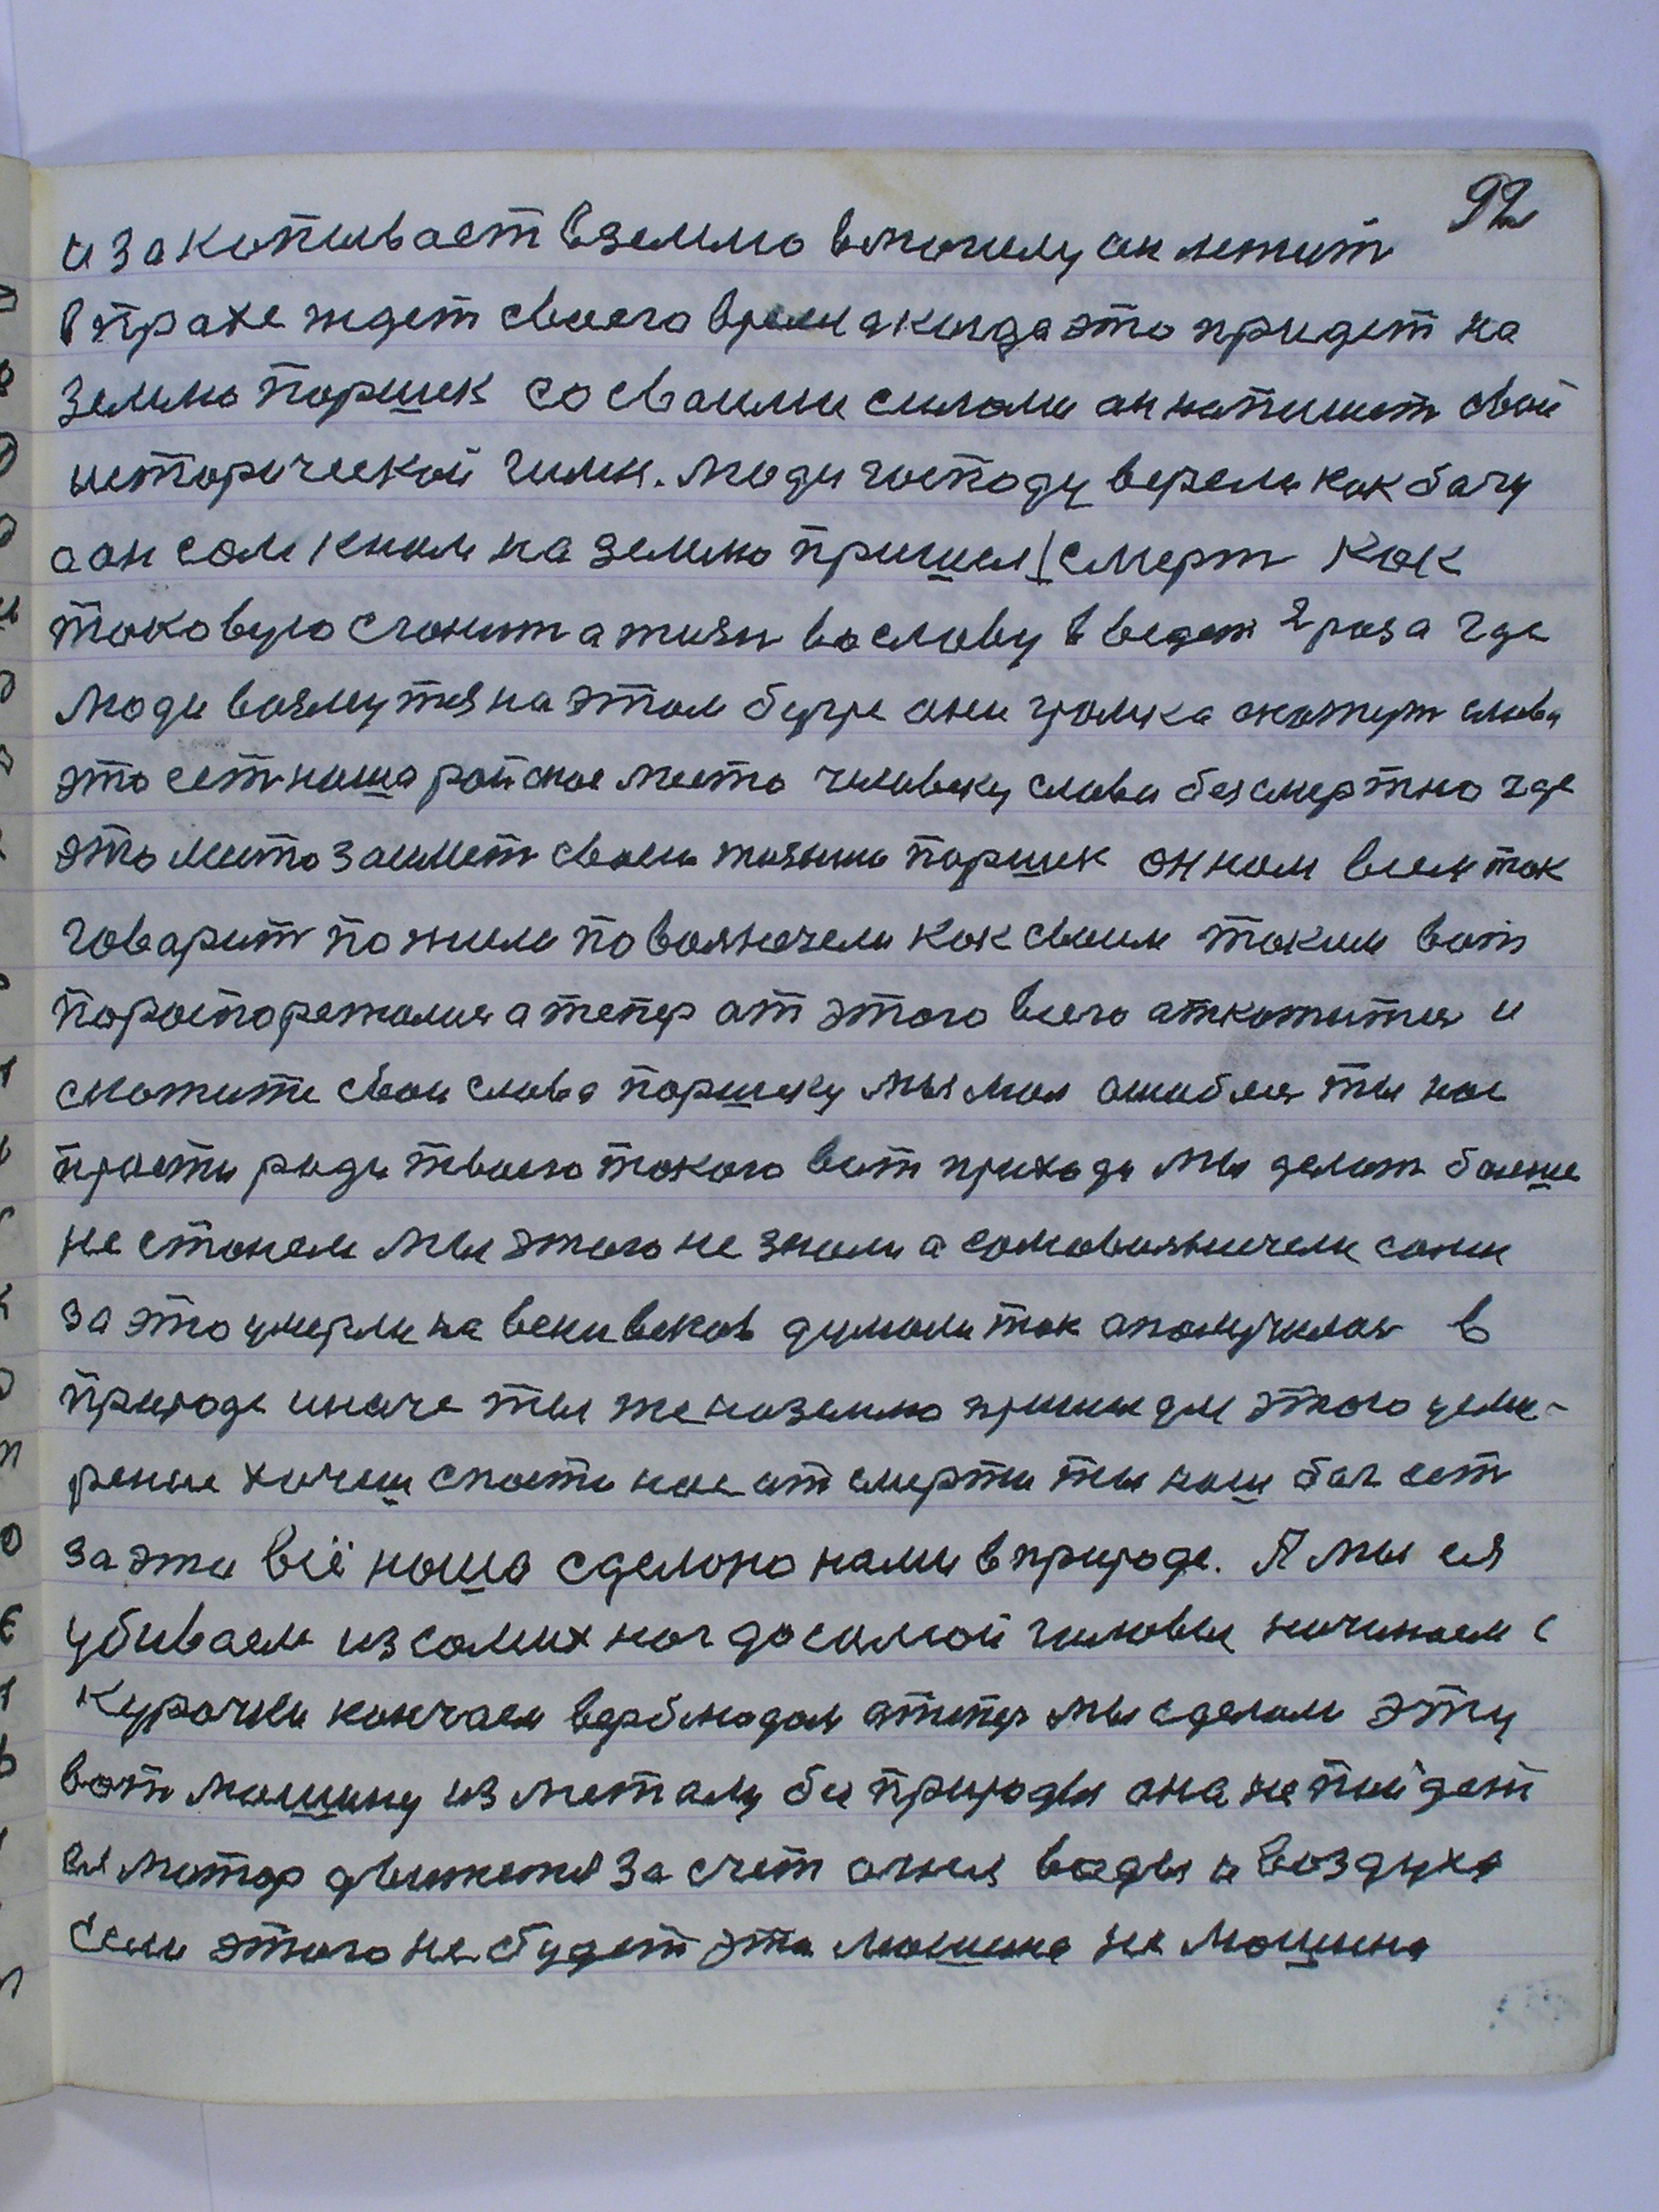 92
и закапывает вземлю вмогилу он лежит
в прахе ждет своего время когда это придет на
землю паршек со своими силами он напишет свой
исторической гимн. люди господу верели как богу
а он сам к ним на землю пришел смерт как
токовую сгонит а жизн во славу введет 2 раза где
люди возмутся на этом бугре они громка скажут слава
это ест наша райское место чиловеку слава безсмертно где
это место займет своею жизнию паршек он нам всем так
говарит пожили повояначели как своим таким вот
а тепер от этого всего откажитися и
скажити свои слова паршеку мы мол ошиблис ты нас
прости ради твоего такого вот прихода мы делат болше
не станем мы этого не знали а сами
за это умерли на веки веков думали так а получилося в
природе иначе ты же на землю пришел для этого
хочеш спасти нас от смерти ты наш бог ест
за эта всё наша сделано нами в природе. А мы ея
убиваем из самих ног до самой головы начинаем с
курочки кончаем верблюдом а тепер мы сделали эту
вот машину из металу без природы она не пойдет
ея мотор движется за счет огня воды и воздуха
если этого не будет эта машина не машина